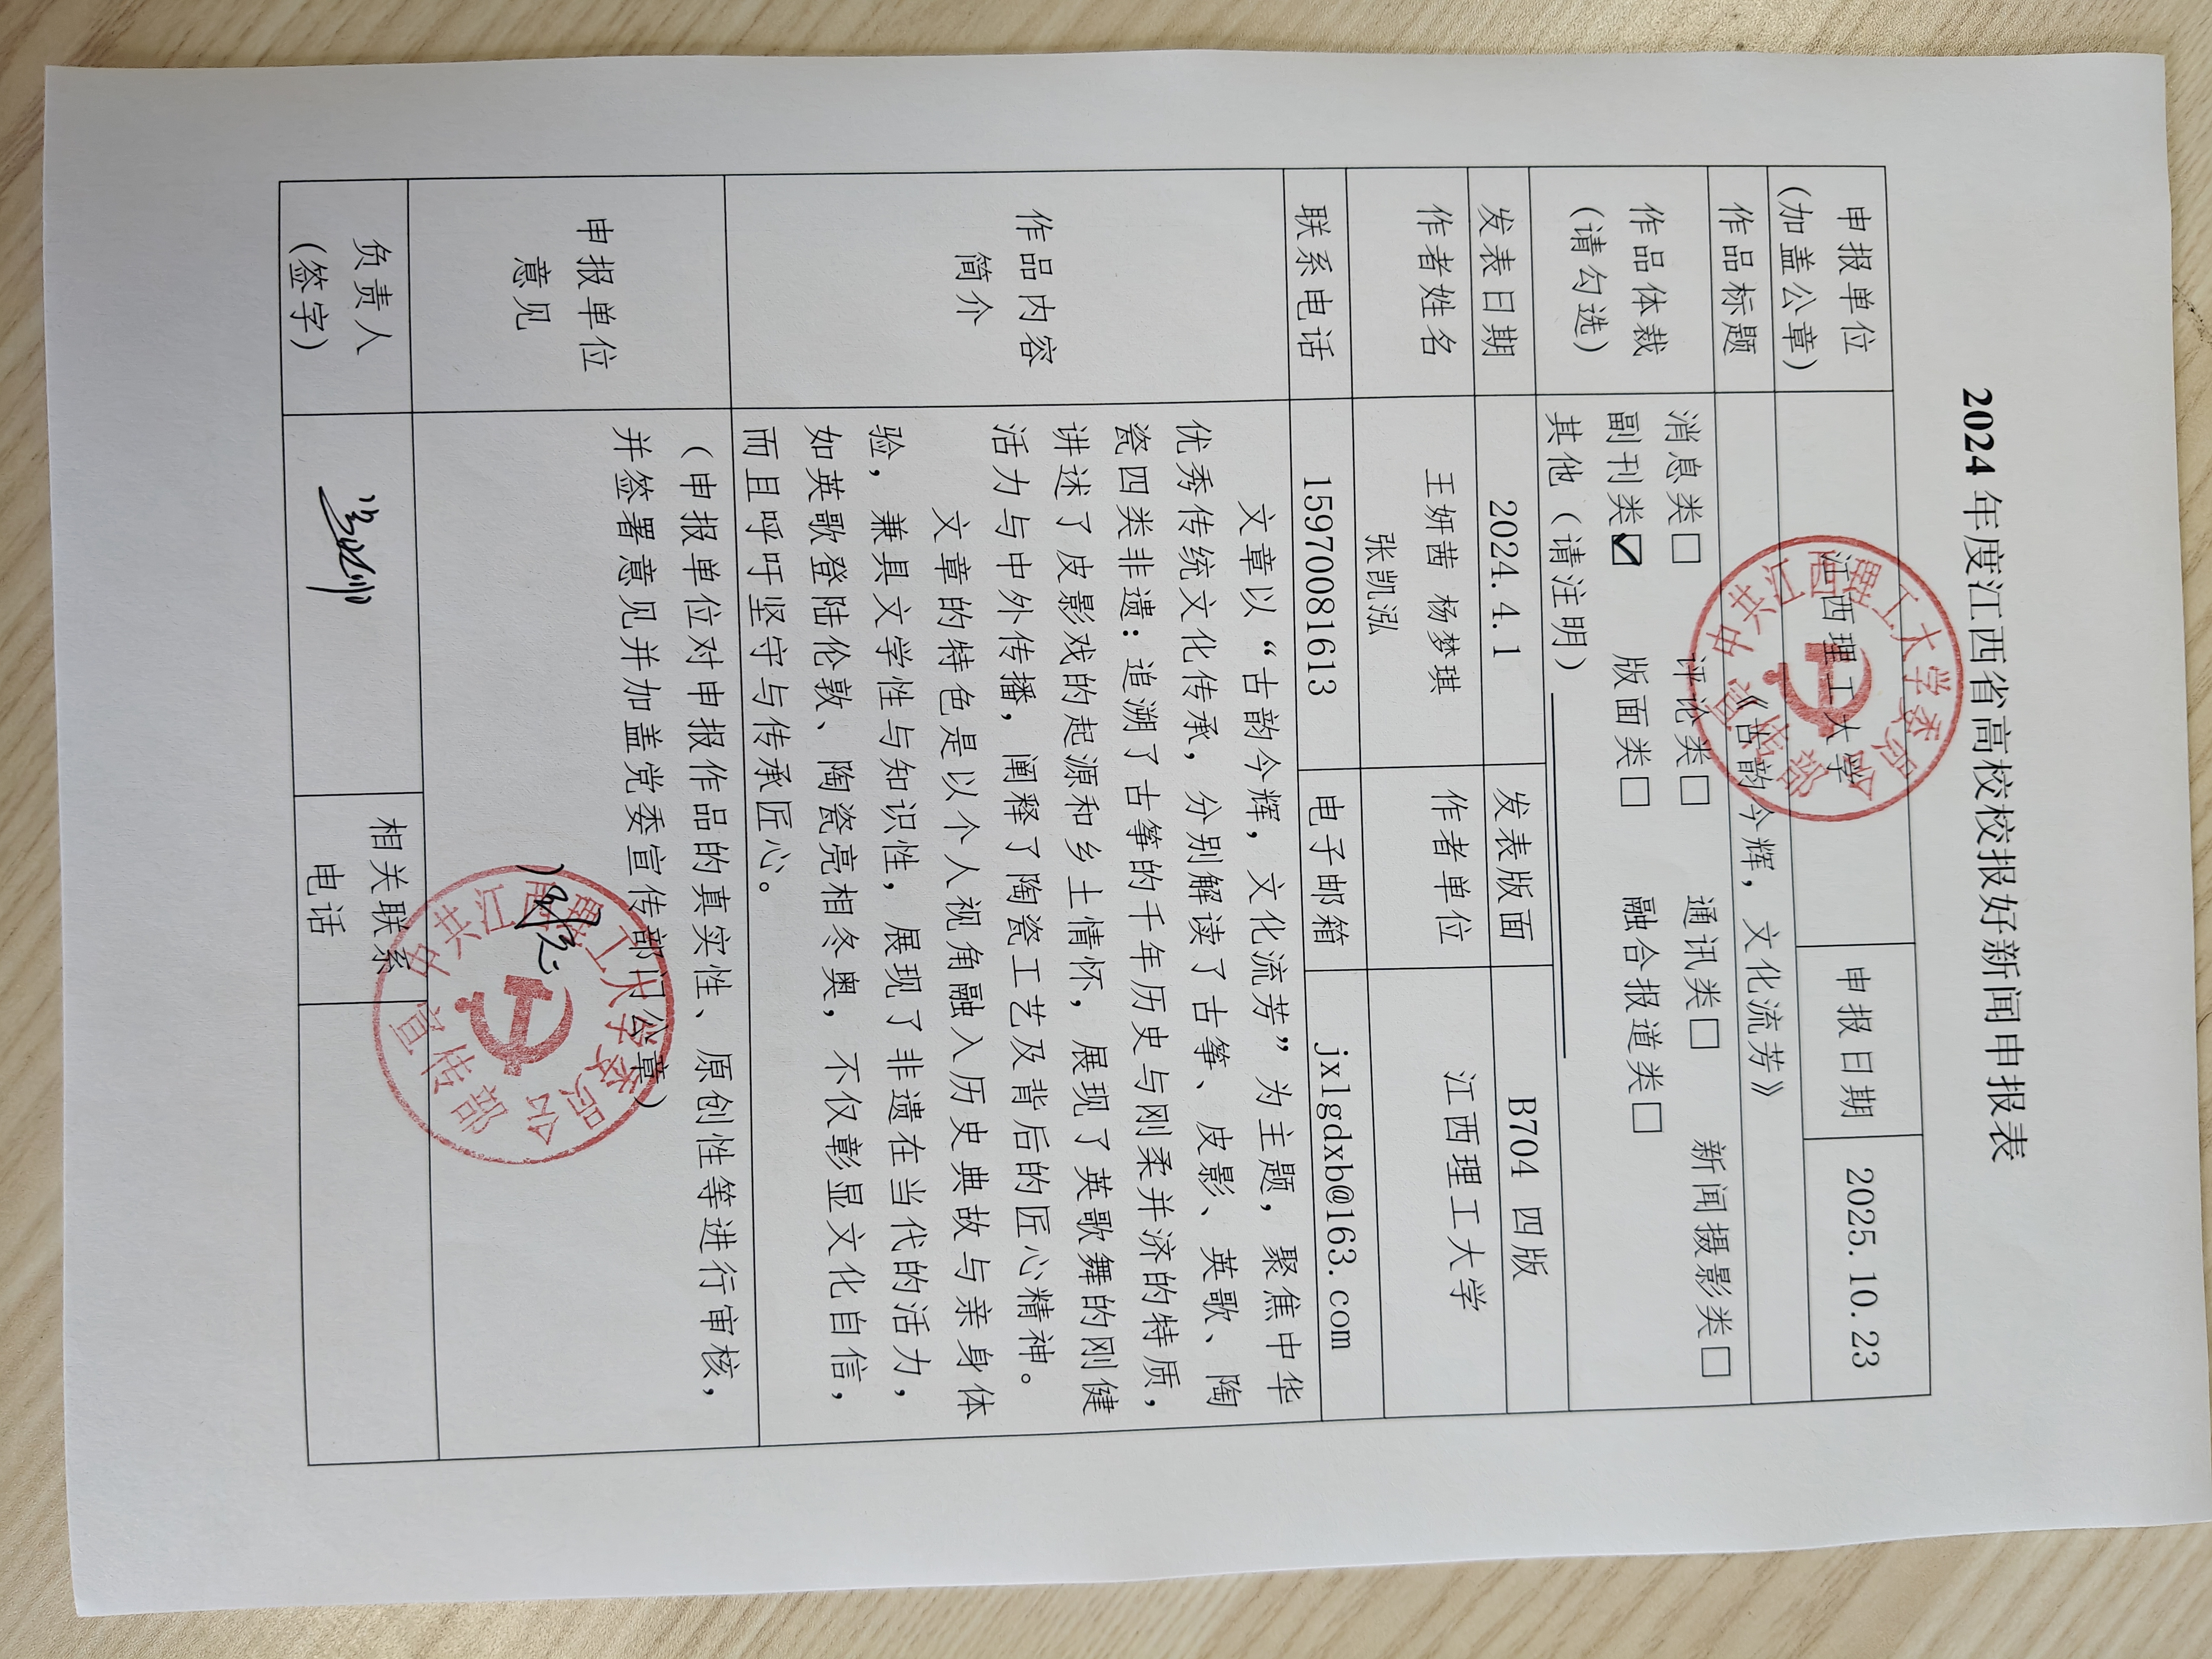 2024年度江西省高校校报好新闻申报表
申报单位
(加盖公章)
江西理工大学
申报日期
2025.10.23
中共江西理工大学委员会
宣传部
作品标题
《古韵今辉，文化流芳》
作品体裁
(请勾选)
消息类□ 评论类□ 通讯类□ 新闻摄影类□
副刊类☑ 版面类□ 融合报道类□
其他（请注明）
发表日期
2024.4.1
发表版面
B704 四版
作者姓名
王妍茜 杨梦琪
张凯泓
作者单位
江西理工大学
联系电话
15970081613
电子邮箱
jxlgdxb@163.com
作品内容
简介
文章以“古韵今辉，文化流芳”为主题，聚焦中华
优秀传统文化传承，分别解读了古筝、皮影、英歌、陶
瓷四类非遗：追溯了古筝的千年历史与刚柔并济的特质，
讲述了皮影戏的起源和乡土情怀，展现了英歌舞的刚健
活力与中外传播，阐释了陶瓷工艺及背后的匠心精神。
文章的特色是以个人视角融入历史典故与亲身体
验，兼具文学性与知识性，展现了非遗在当代的活力，
如英歌登陆伦敦、陶瓷亮相冬奥，不仅彰显文化自信，
而且呼吁坚守与传承匠心。
申报单位
意见
（申报单位对申报作品的真实性、原创性等进行审核，
并签署意见并加盖党委宣传部门公章）
中共江西理工大学委员会
宣传部
负责人
(签字)
相关联系
电话